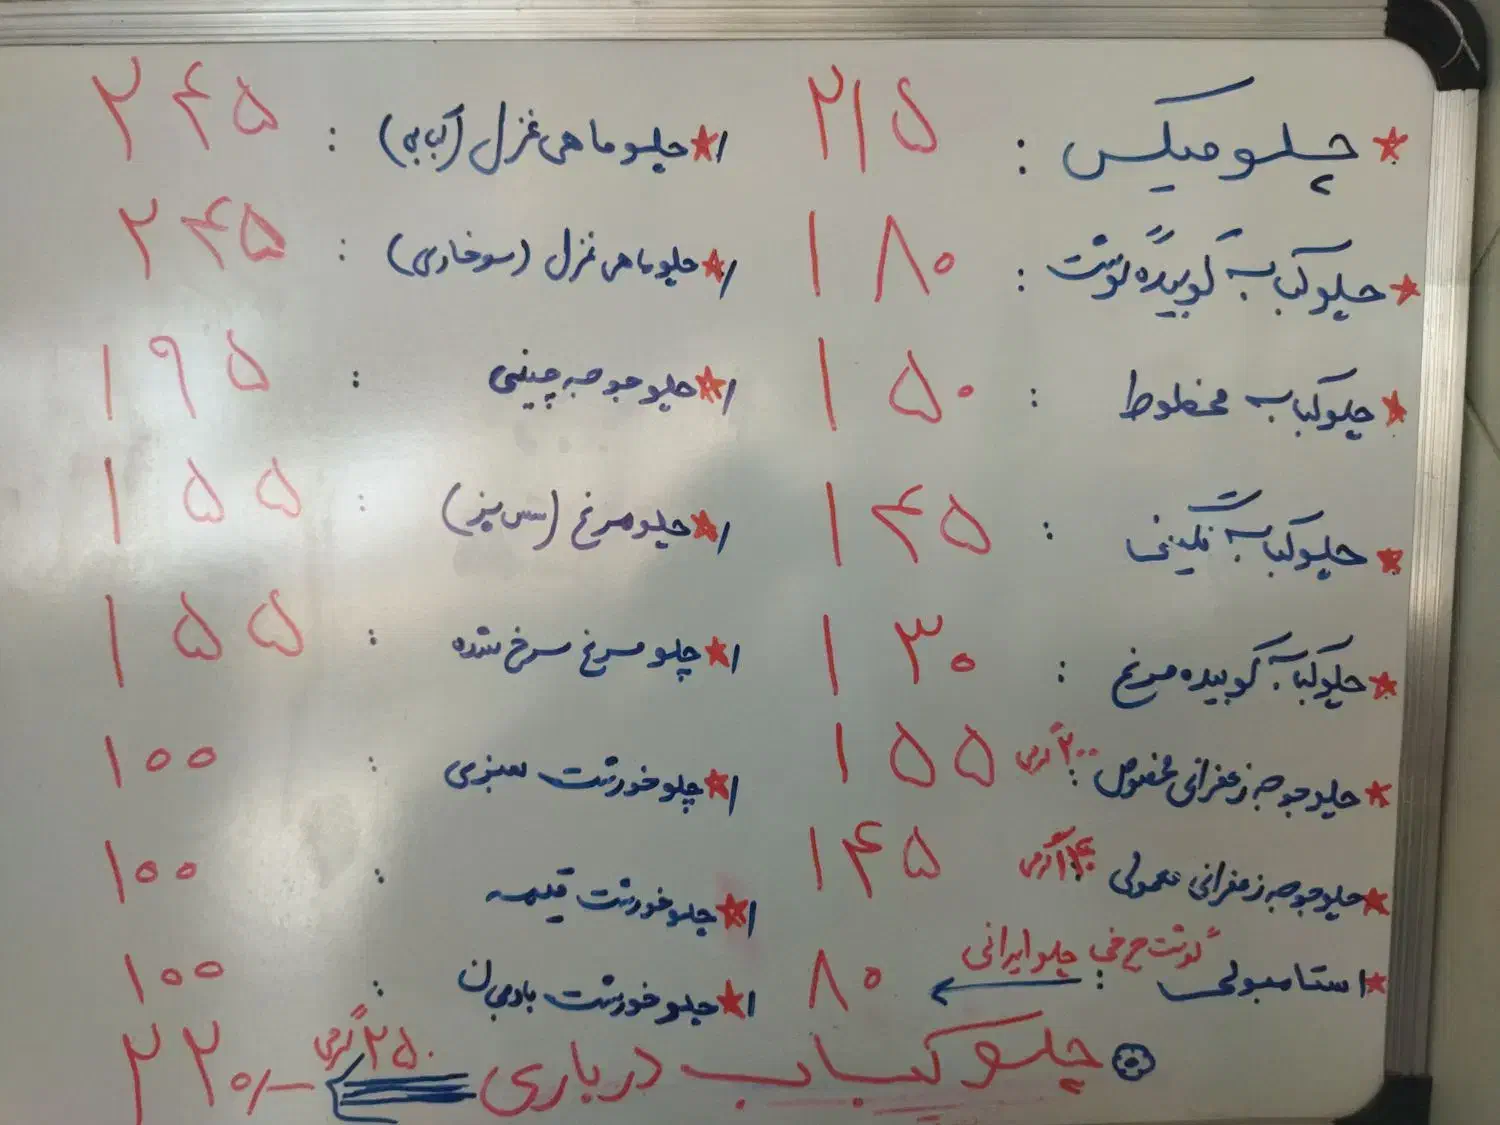 چلو میکس : ۲۱۵
چلوکباب کوبیده گوشت : ۱۸۰
چلوکباب مخلوط : ۱۵۰
چلوکباب نگینی : ۱۴۵
چلوکباب کوبیده مرغ : ۱۳۰
چلوجوجه زعفرانی مخصوص : ۲۰۰ گرمی ۱۵۵
چلوجوجه زعفرانی معمولی ۱۴۰ گرمی ۱۴۵
گوشت چرخی چلو ایرانی
استامبولی : ۸۰
چلو ماهی غزل (کبابی) : ۲۴۵
چلو ماهی غزل (سوخاری) : ۲۴۵
چلو جوجه چینی : ۱۹۵
چلو مرغ (سس پز) : ۱۵۵
چلو مرغ سرخ شده : ۱۵۵
چلو خورشت سبزی : ۱۰۰
چلو خورشت قیمه : ۱۰۰
چلو خورشت بادمجان : ۱۰۰
چلو کباب درباری ۲۵۰ گرمی ۲۲۰/-